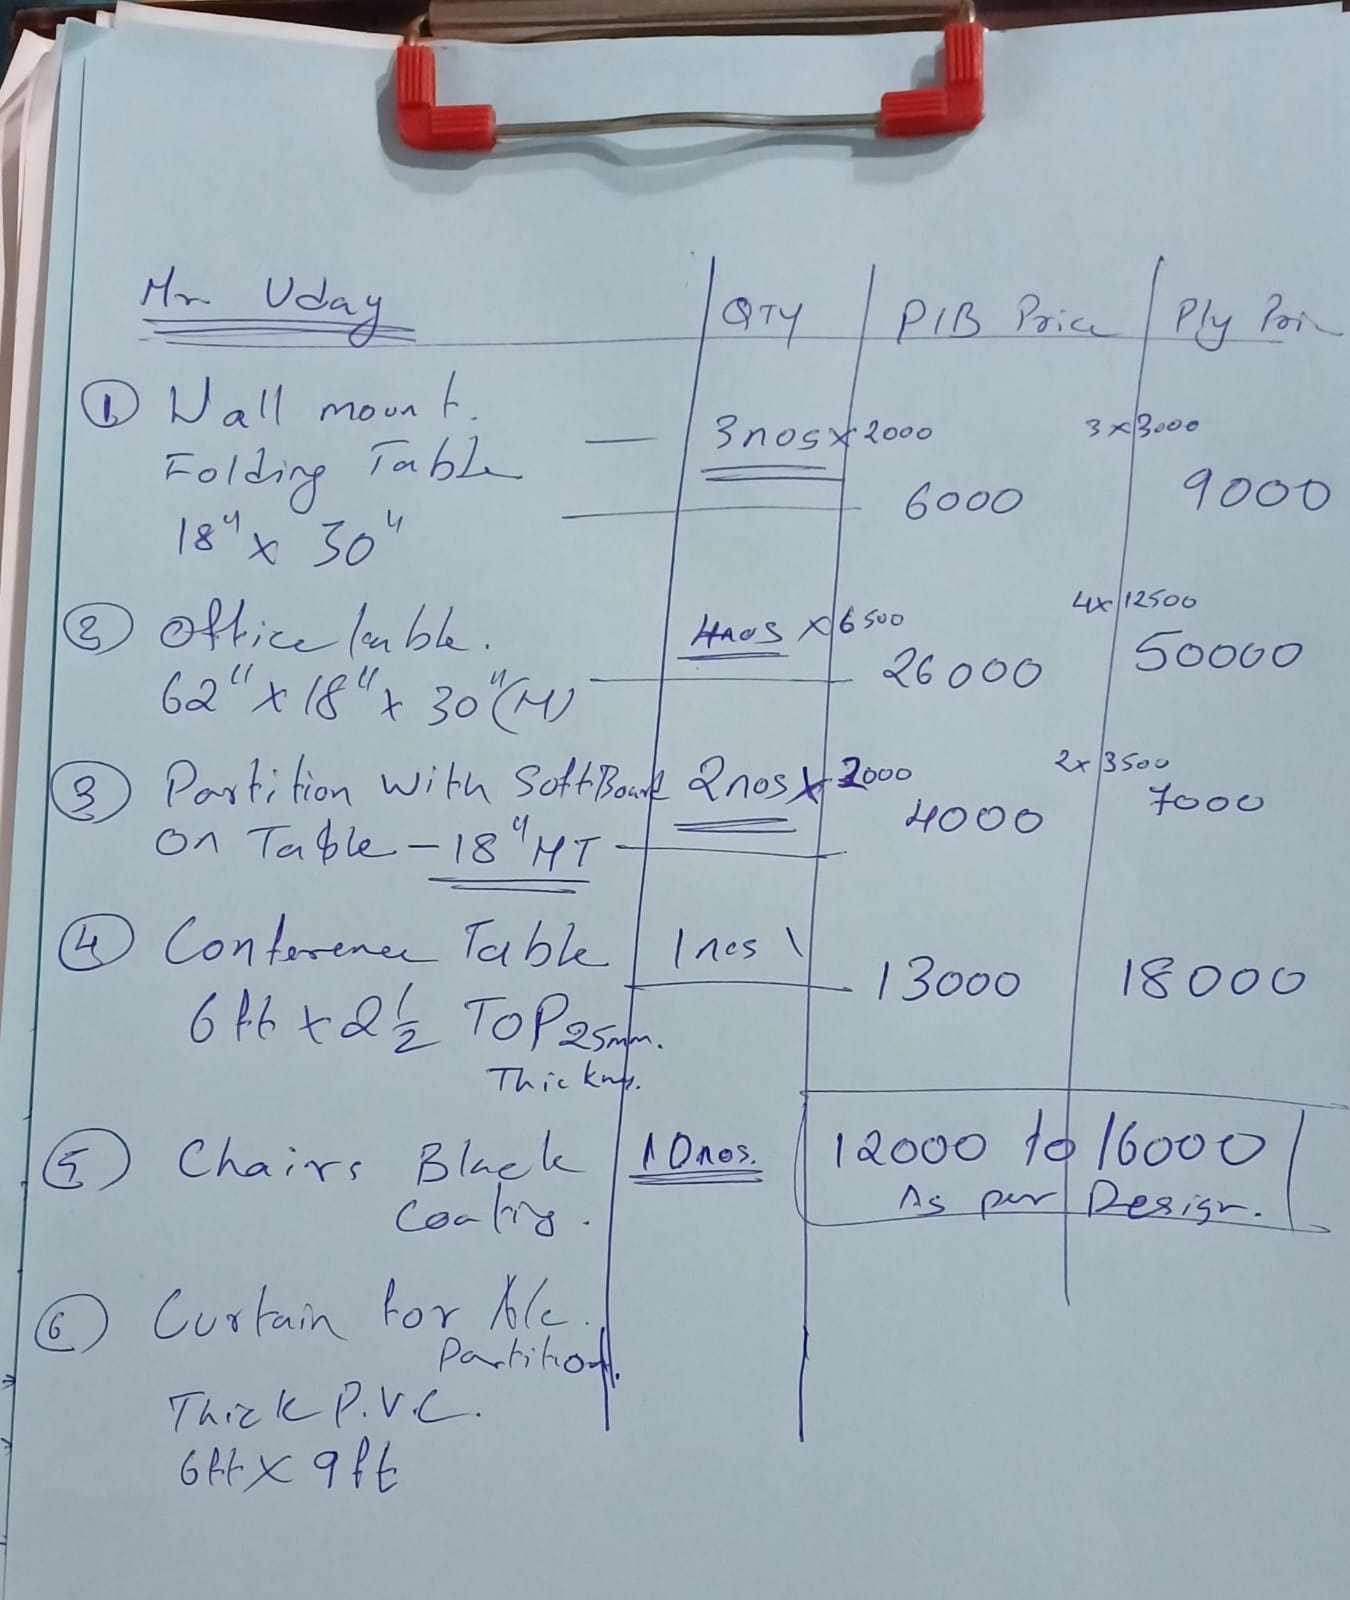 Mr Uday QTY P/B Price Ply Pri
① Wall mount. 3nos x 2000 3 x 3000
Folding Table 6000 9000
18" x 30"
② Office table. 4nos x 6500 4x 12500
62" x 18" x 30" (H) 26000 50000
③ Partition with Soft Board 2nos x 2000 2x 3500
On Table - 18" HT 4000 7000
④ Conference Table 1nos 13000 18000
6ft x 2½ TOP 25mm.
Thickns.
⑤ Chairs Black 10nos. 12000 to 16000
Coating. As per Design.
⑥ Curtain for A/c.
Partition.
Thick P.V.C.
6ft x 9ft